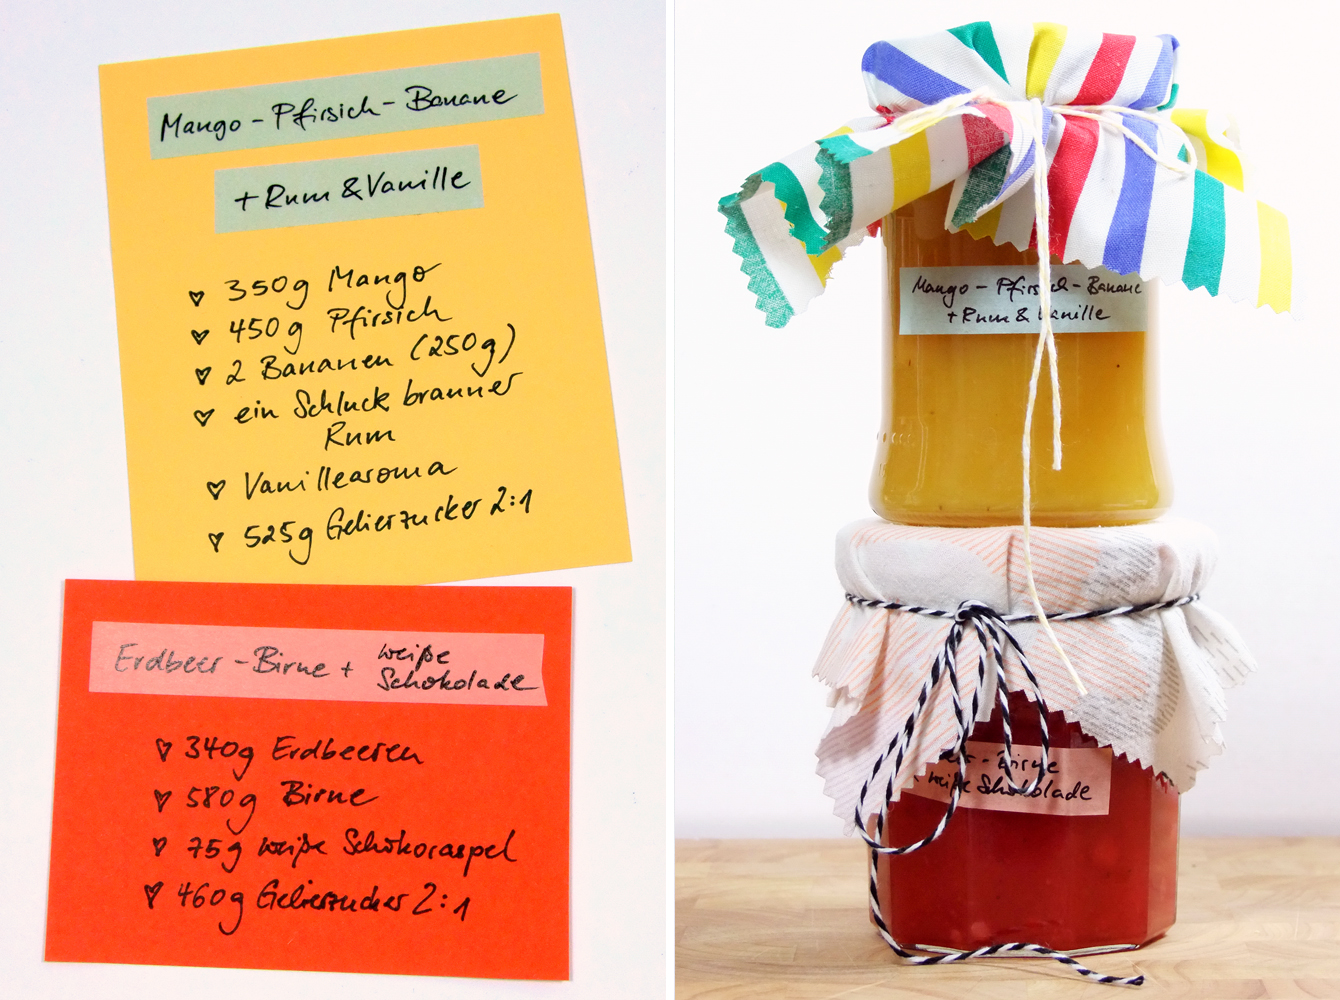 Mango - Pfirsich - Banane
+ Rum & Vanille
350g Mango
450g Pfirsich
2 Bananen (250g)
ein Schluck brauner
Rum
Vanillearoma
525g Gelierzucker 2:1
Erdbeer - Birne + weiße
Schokolade
340g Erdbeeren
580g Birne
75g weiße Schokoraspel
460g Gelierzucker 2:1
Mango - Pfirsich - Banane
+ Rum & Vanille
- Birne
weiße Schokolade